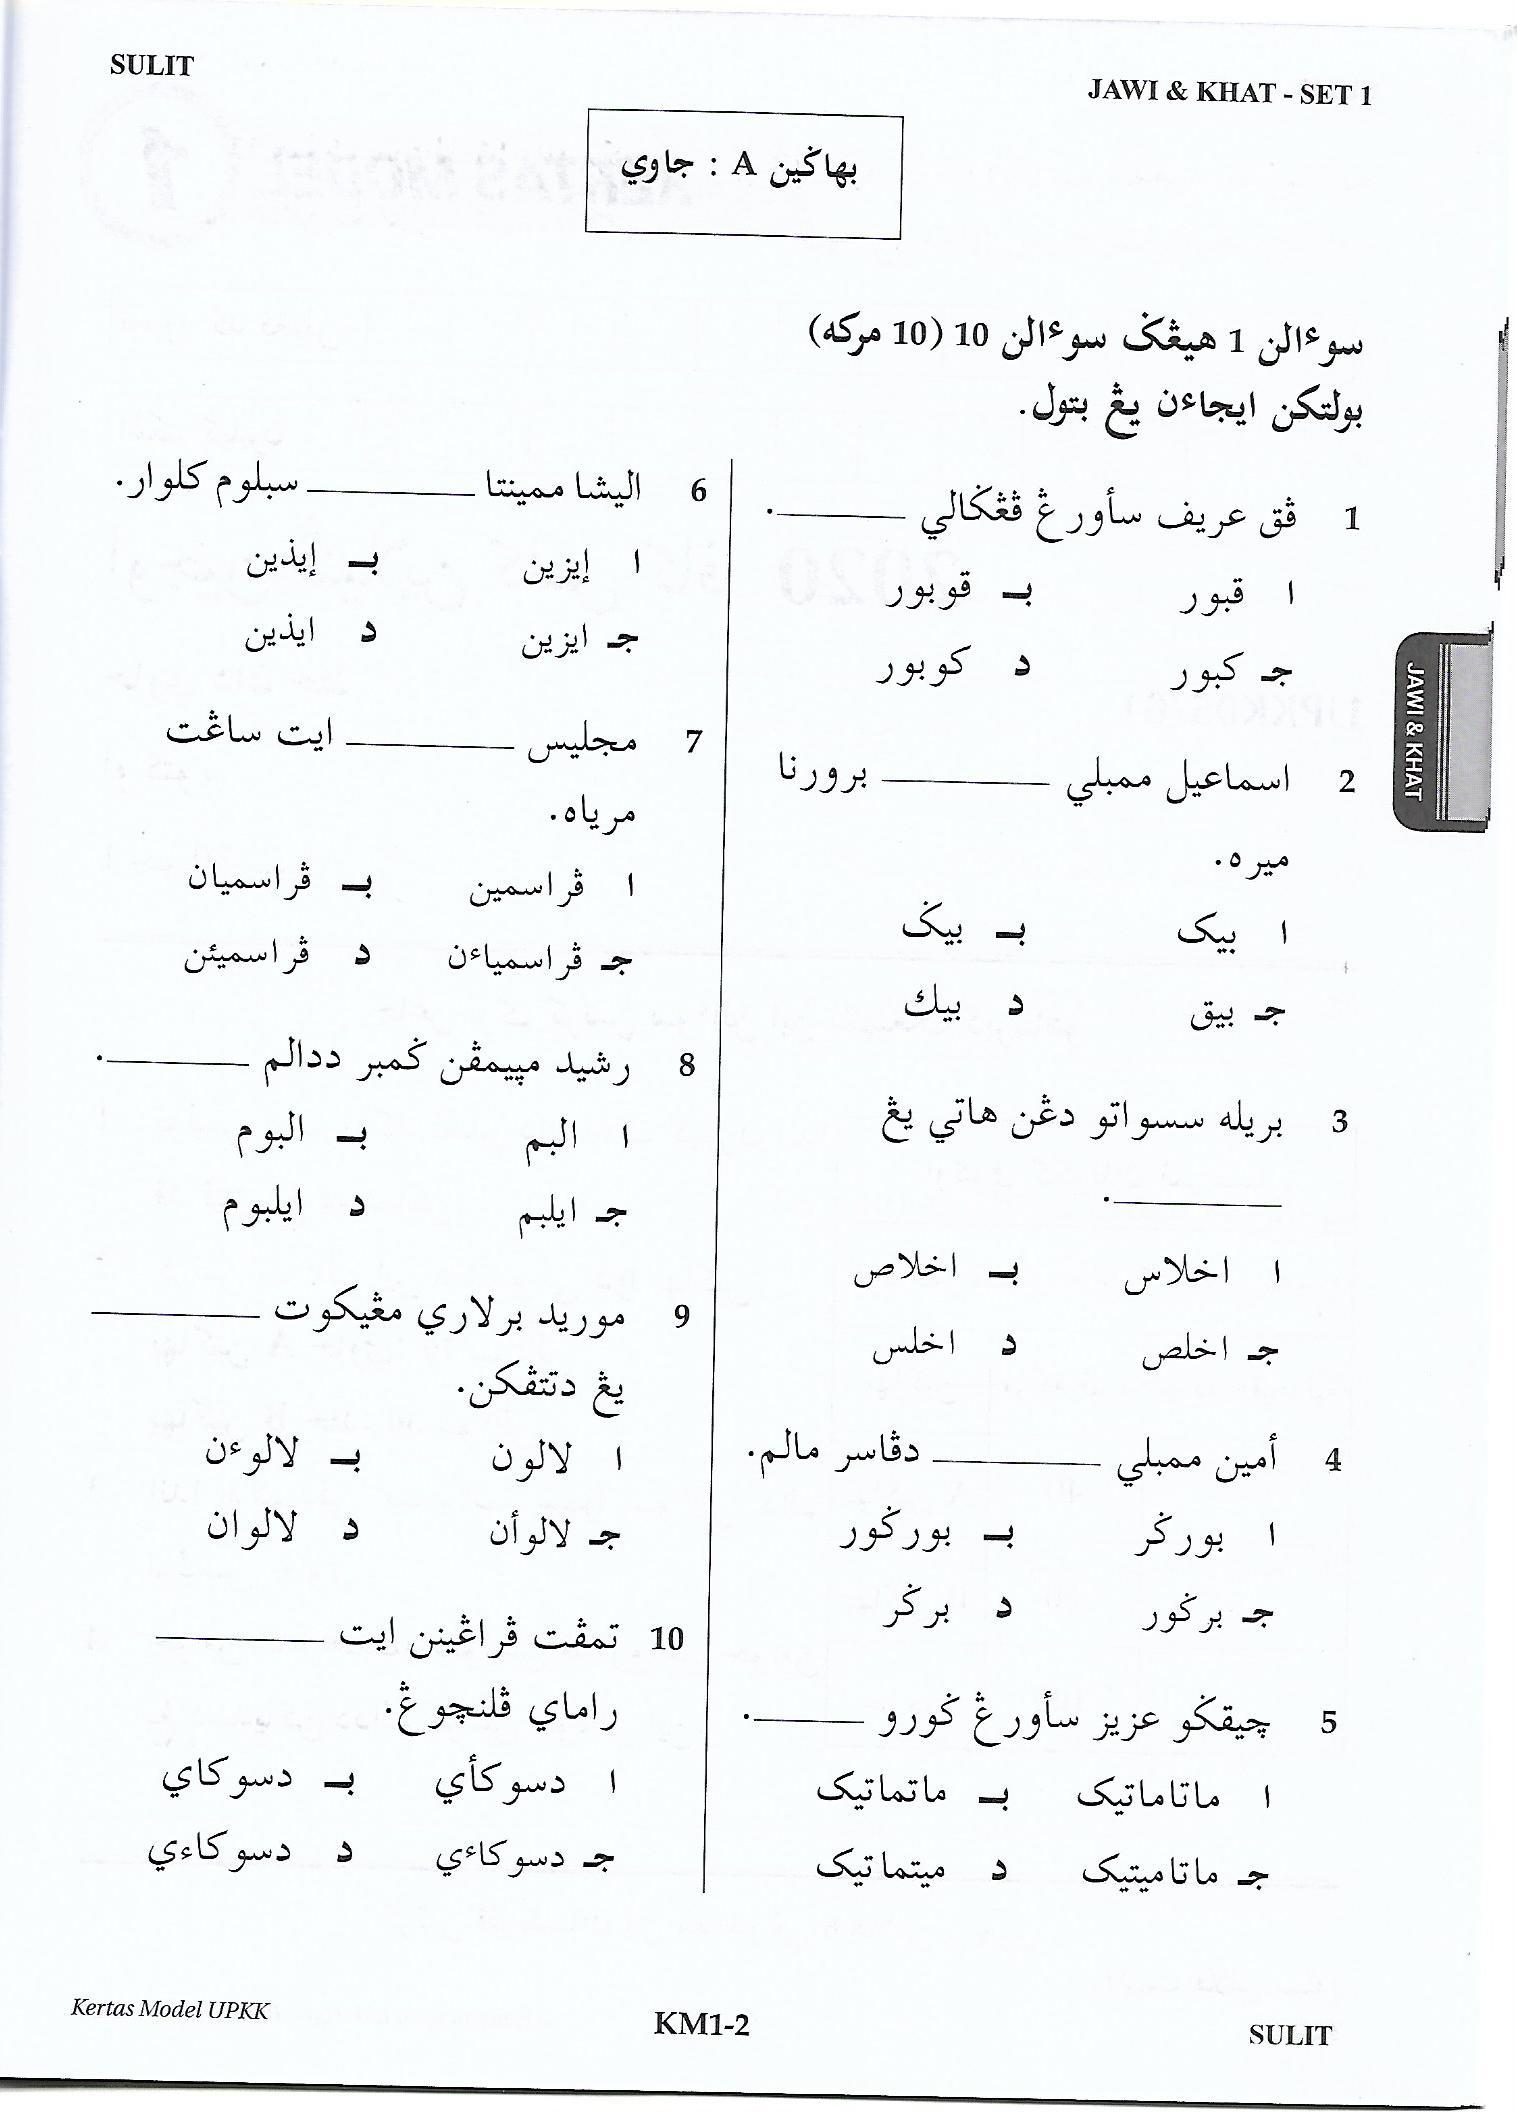 SULIT
JAWI & KHAT - SET 1
بهاݢين A : جاوي
سوءالن 1 هيڠݢ سوءالن 10 (10 مركه)
بولتكن ايجاءن يڠ بتول.
1 ڤق عريف سأورڠ ڤڠݢالي ________.
ا قبور بـ قوبور
جـ كبور د كوبور
2 اسماعيل ممبلي ________ برورنا
ميره.
ا بيک بـ بيݢ
جـ بيق د بيك
3 بريله سسواتو دڠن هاتي يڠ
________.
ا اخلاس بـ اخلاص
جـ اخلص د اخلس
4 أمين ممبلي ________ دڤاسر مالم.
ا بورݢر بـ بورݢور
جـ برݢور د برݢر
5 چيقݢو عزيز سأورڠ ݢورو ________.
ا ماتاماتيک بـ ماتماتيک
جـ ماتاميتيک د ميتماتيک
6 اليشا ممينتا ________ سبلوم كلوار.
ا إيزين بـ إيذين
جـ ايزين د ايذين
7 مجليس ________ ايت ساڠت
مرياه.
ا ڤراسمين بـ ڤراسميان
جـ ڤراسمياءن د ڤراسميئن
8 رشيد مڽيمڤن ݢمبر ددالم ________.
ا البم بـ البوم
جـ ايلبم د ايلبوم
9 موريد برلاري مڠيكوت ________
يڠ دتتڤكن.
ا لالون بـ لالوءن
جـ لالوأن د لالوان
10 تمڤت ڤراڠينن ايت ________
راماي ڤلنچوڠ.
ا دسوكأي بـ دسوكاي
جـ دسوكاءي د دسوكاءي
JAWI & KHAT
Kertas Model UPKK
KM1-2
SULIT